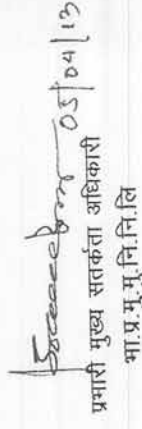 05/04/13
प्रभारी मुख्य सतर्कता अधिकारी
भा.प्र.मु.मु.नि.नि.लि